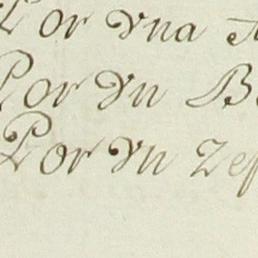 Por vna
Por vn B
Por vn Zep